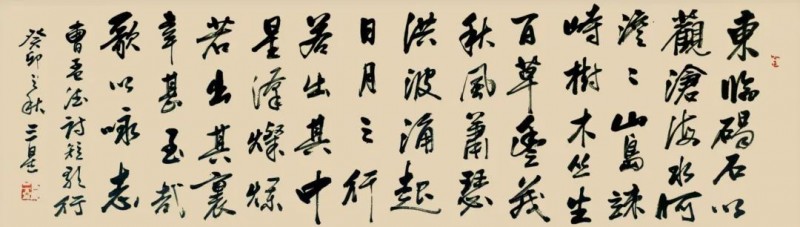 東臨碣石以
觀滄海水何
澹〻山島竦
峙樹木丛生
百草豐茂
秋風蕭瑟
洪波涌起
日月之行
若出其中
星漢燦爛
若出其裏
幸甚至哉
歌以咏志
曹孟德詩短歌行
癸卯之秋